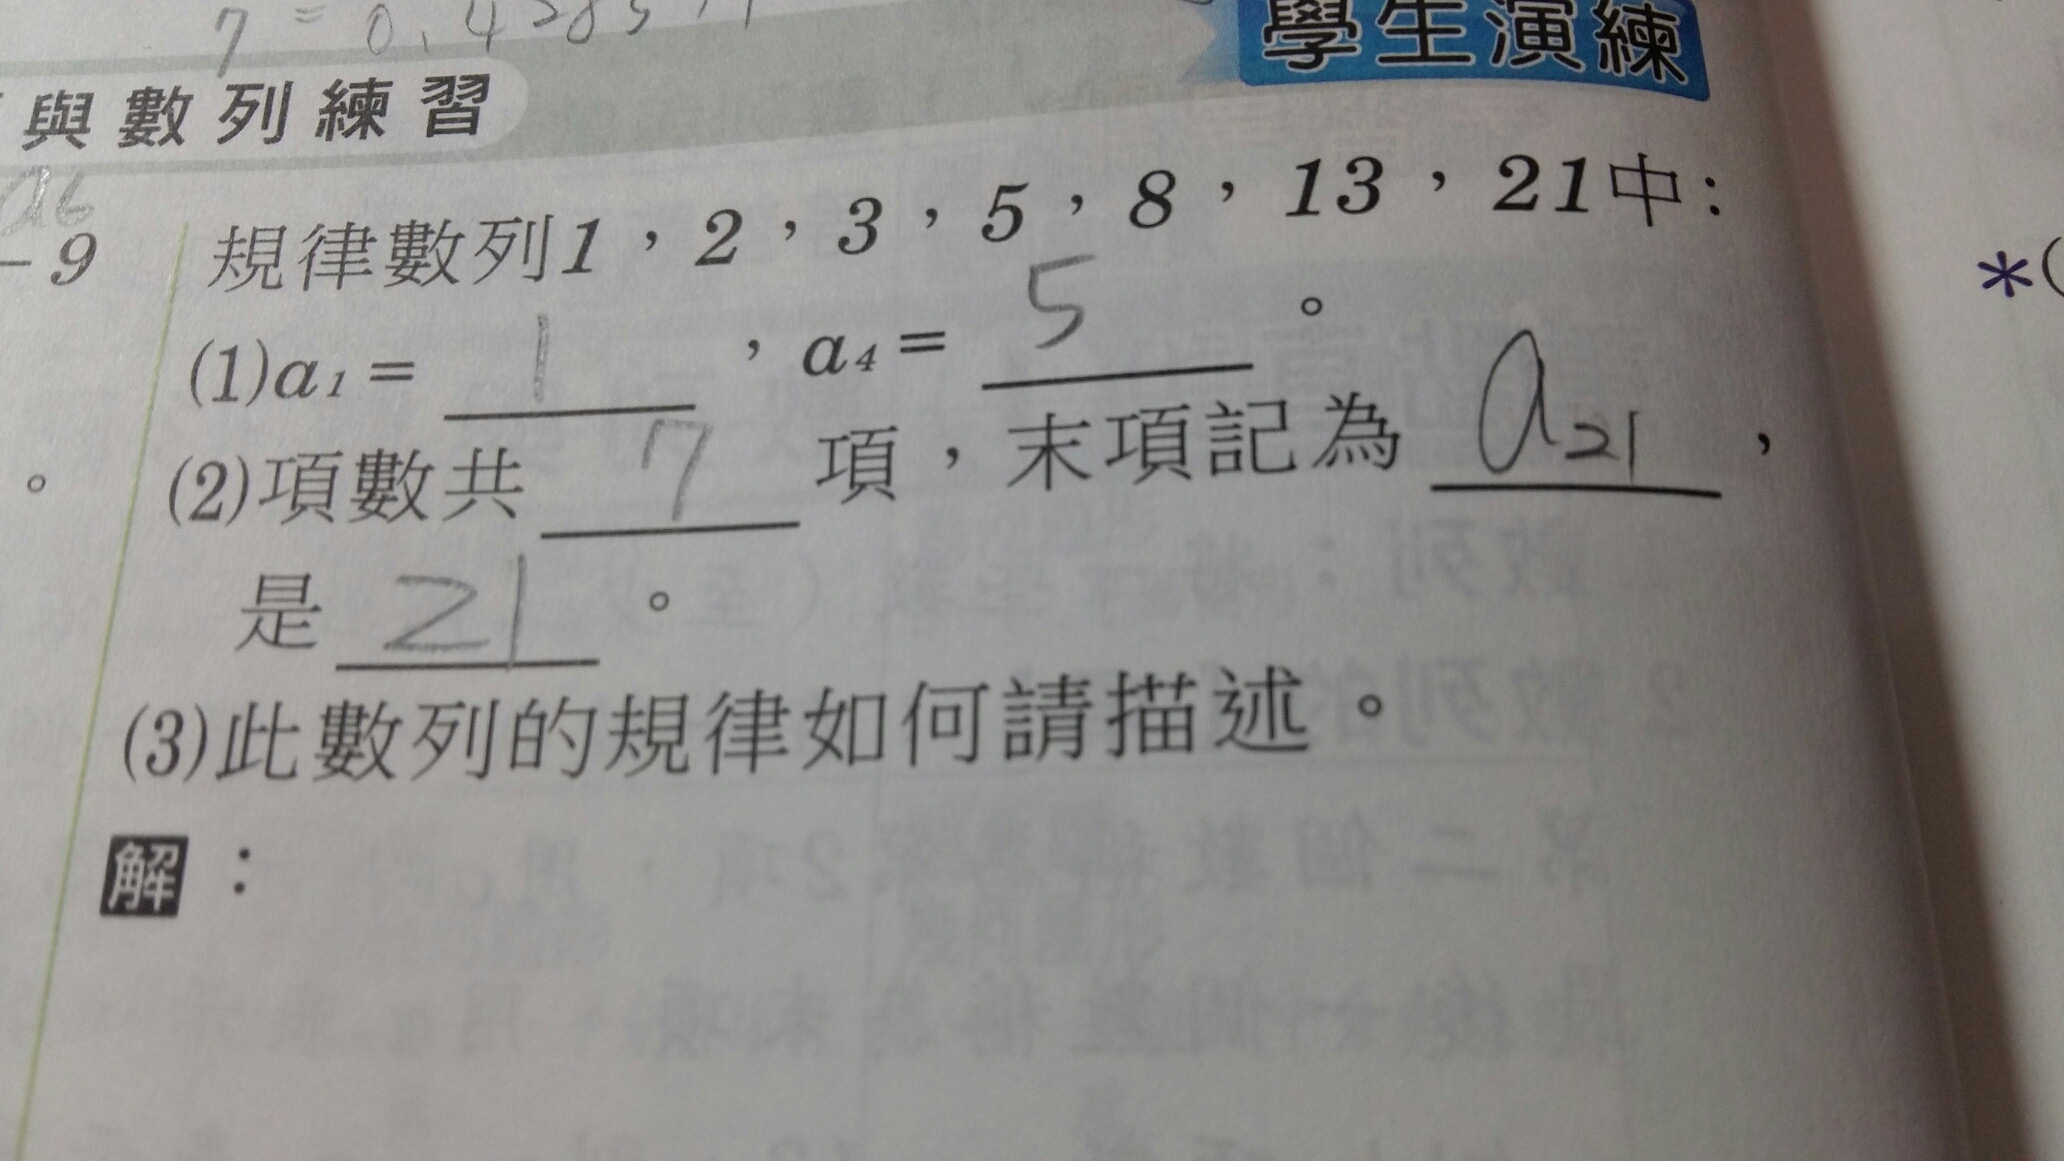 7 = 0.428571
學生演練
與數列練習
a6
-9
規律數列1,2,3,5,8,13,21中:
*(
(1)a1= 1 ,a4= 5 。
(2)項數共 7 項,末項記為 a21 ,
。
是 21 。
(3)此數列的規律如何請描述。
解: